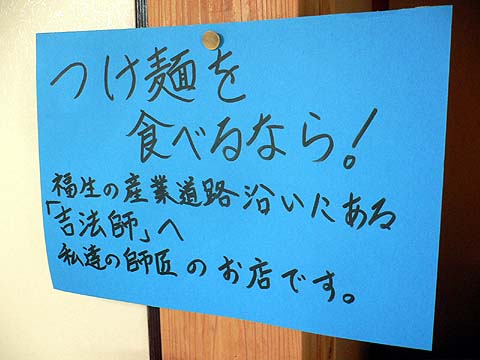 つけ麺を
食べるなら!
福生の産業道路沿いにある
「吉法師」へ
私達の師匠のお店です。